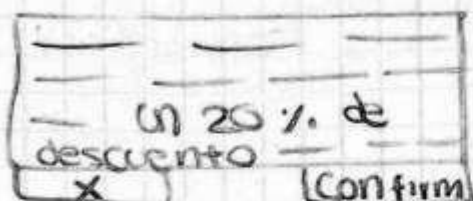 un 20 % de
descuento
X Confirm